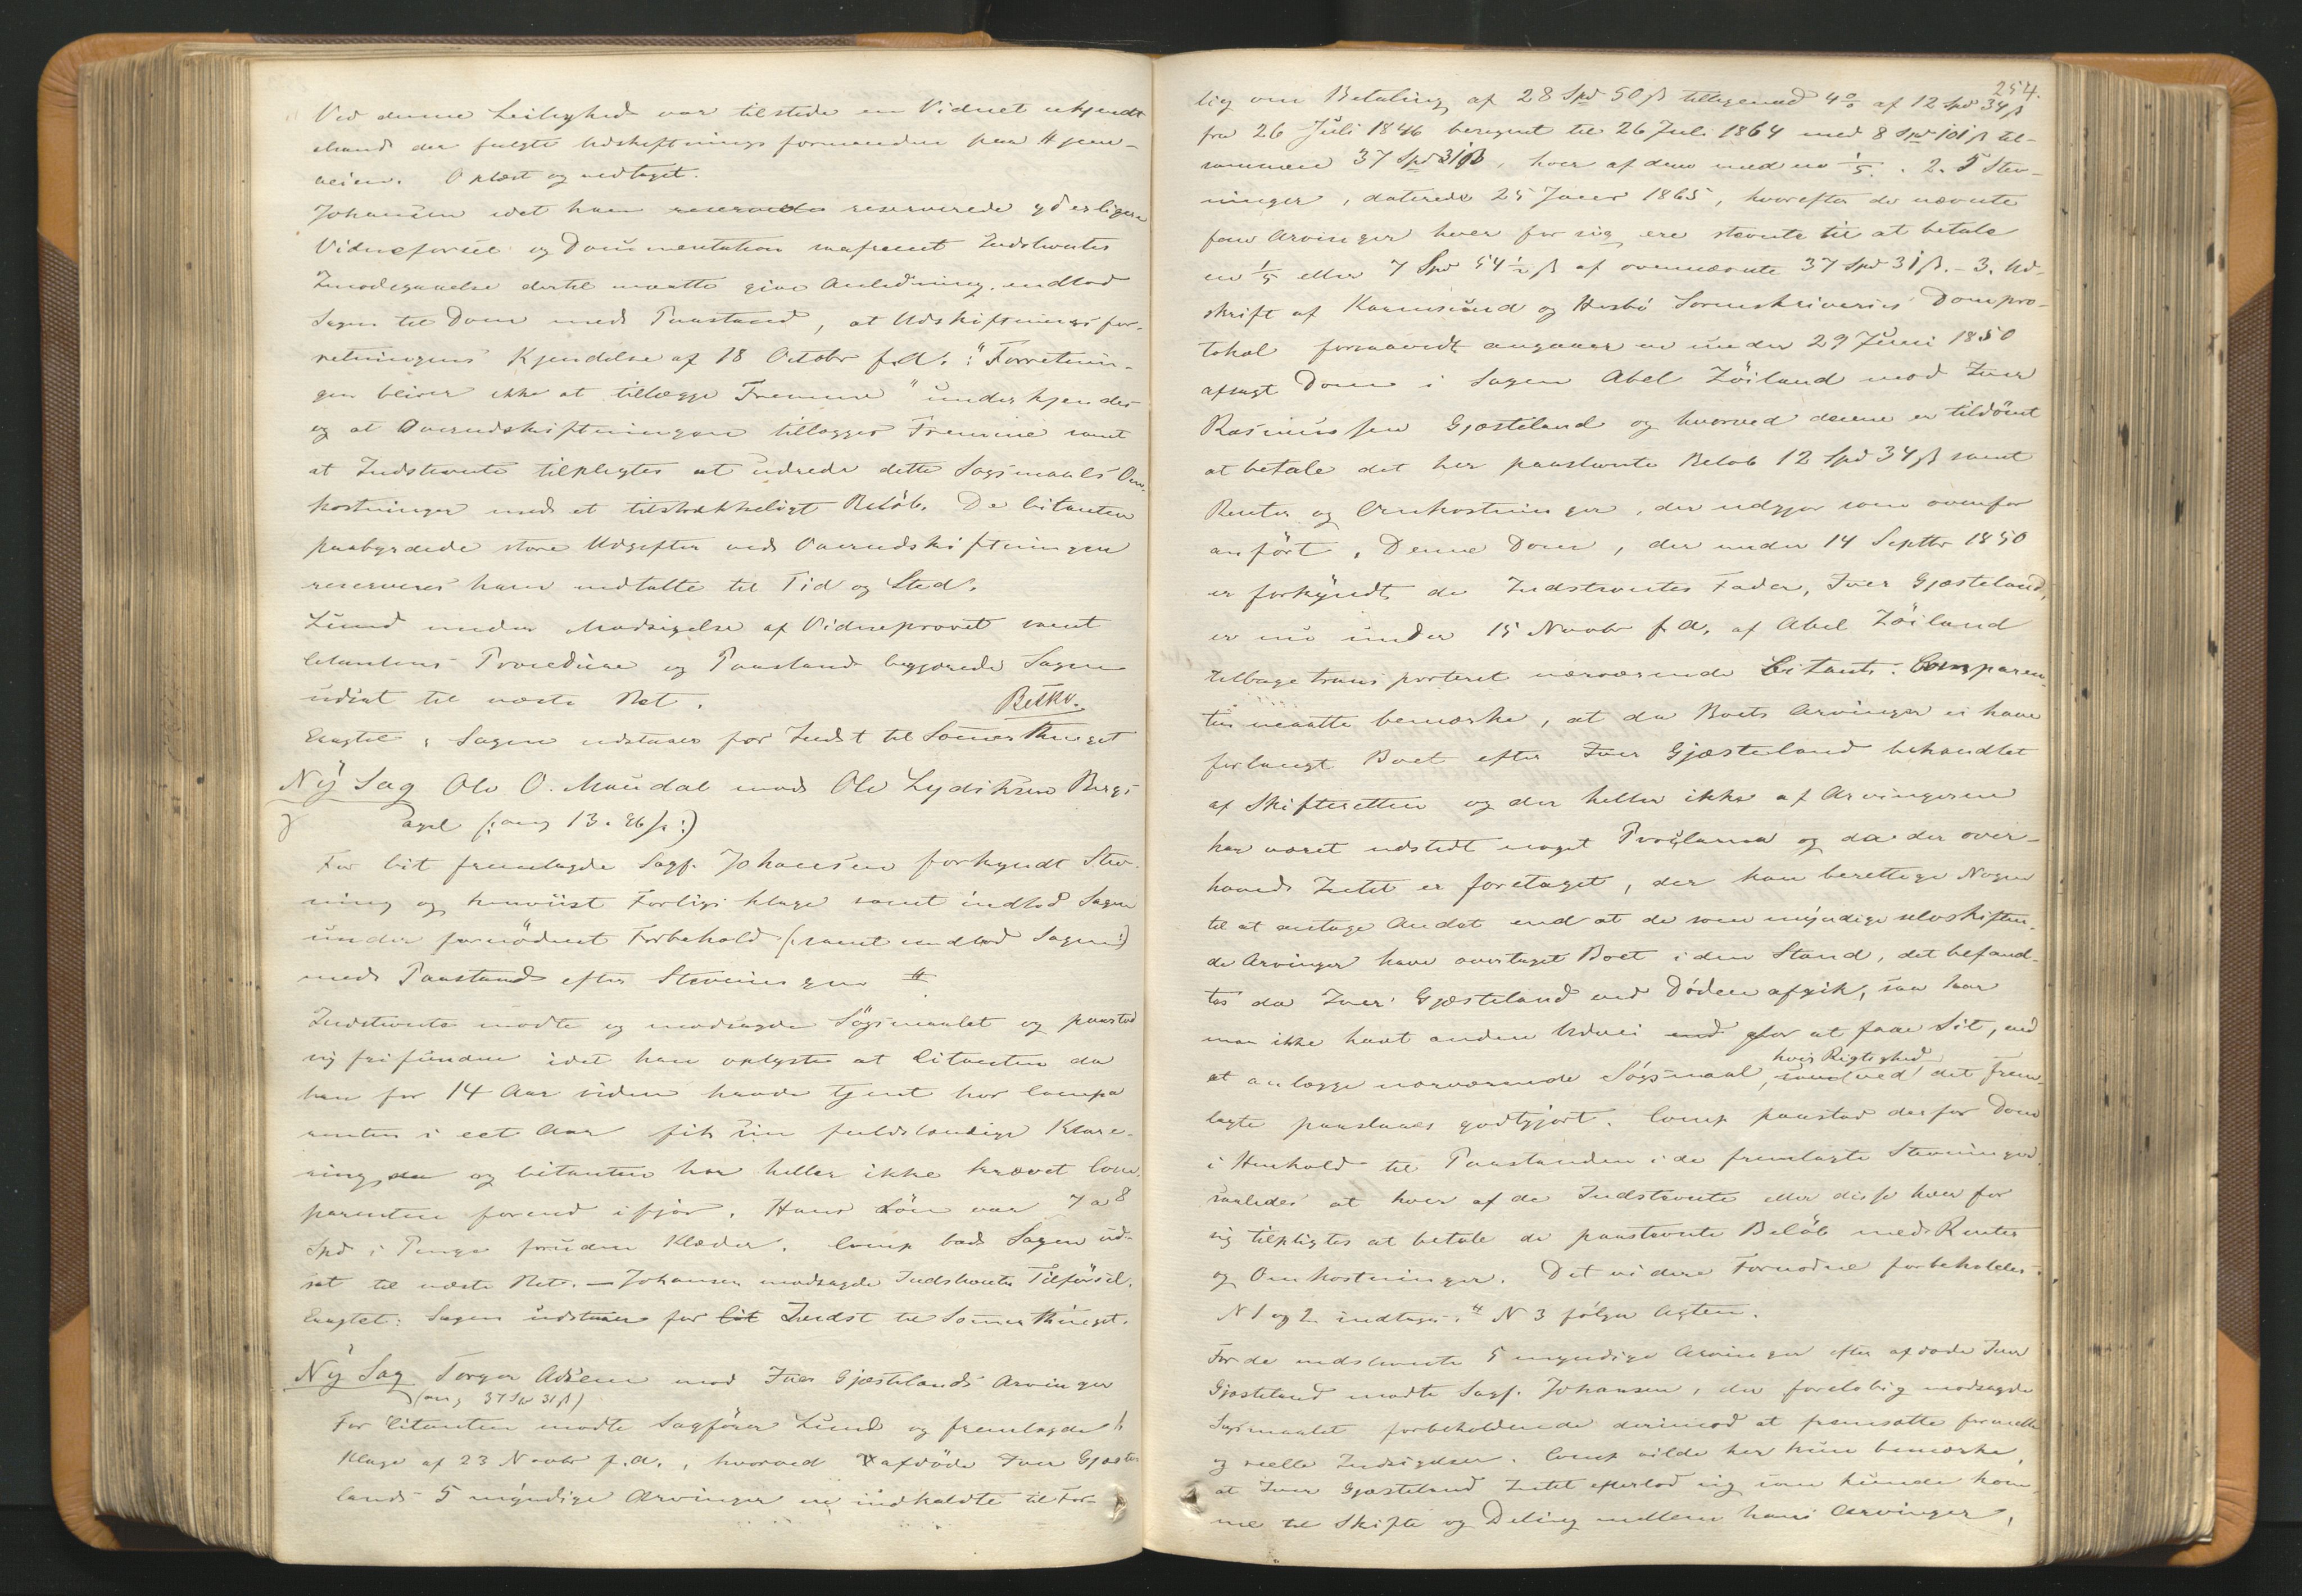 Ved denne Leilighed var tilstede en Vidnet ukjendt
Mand der fulgte Udskiftningsformanden paa Hjem-
veien. Oplæst og vedtaget.
Johansen idet han reserverede reserverede yderligere
Vidneførsel og Documentation saafremt Indstevntes
Imødegaaelse dertil maatte give Anledning, indlod
Sagen til Dom med Paastand, at Udskiftningsfor-
retningens Kjendelse af 18 Octobr f.A.: "Forretnin-
gen bliver ikke at tillægge Fremme" underkjendes
og at Overudskiftningen tillægges Fremme samt
at Indstevnte tilpligtes at udrede dette Sagsmaals Om-
kostninger med et tilstrækkeligt Beløb. De Citanten
paabyrdede store Udgifter ved Overudskiftningen
reserveres ham medtalte til Tid og Sted.
Lund under Modsigelse af Vidneprovet samt
Citantens Procedure og Paastand begjærede Sagen
udsat til næste Ret.
Beskv.
Eragtet: Sagen udstaaer for Indst til Sommerthinget
Ny Sag Ole O. Maudal mod Ole Lydiksen Bergs-
agel (: ang 13. 86 s :)
For Cit fremlagde Sagf. Johansen forkyndt Stev-
ning og henviist Forligsklage samt indlod Sagen
under fornødent Forbehold (: samt indlod Sagen :)
med Paastand efter Stevningen #
Indstevnte mødte og modsagde Søgsmaalet og paastod
sig frifunden idet han oplyste at Citanten da
han for 14 Aar siden havde tjent hos Compa
renten i eet Aar fik sin fuldstændige Klare-
ring, da og Citanten har heller ikke krævet Com-
parenten forend ifjor. Hans Løn var 7 a 8
Spd i Penge foruden Klæder. Comp bad Sagen ud-
sat til næste Ret. – Johansen modsagde Indstevntes Tilførsel.
Eragtet: Sagen udstaaer for Cit Indst til Sommerthinget.
Ny Sag Torger Adsem mod Iver Gjæstelands Arvinger
(ang 37 Sp 31 ß)
For Citanten mødte Sagfører Lund og fremlagde 1.
Klage af 23 Novbr f.A., hvorved afdøde Iver Gjæste-
lands 5 myndige Arvinger ere indkaldte til For-
254.
lig om Betaling af 28 Spd 50 ß tilligemed 4% af 12 Spd 34 ß
fra 26 Juli 1846 beregnet til 26 Juli 1864 med 8 Spd 101 ß til-
sammen 37 Spd 31 ß, hver af dem med en 1/5. 2. 5 Stev-
ninger, daterede 25 Januar 1865, hvorefter de nævnte
fem Arvinger hver for sig ere stevnte til at betale
en 1/5 eller 7 Spd 54 1/2 ß af ovennævnte 37 Spd 31 ß. – 3. Ud-
skrift af Karmsund og Hesbø Sorenskriveries Dompro-
tokol forsaavidt angaaer en under 29 Juni 1850
afsagt Dom i Sagen Abel Zöiland mod Iver
Rasmussen Gjæsteland og hvorved denne er tildømt
at betale det her paastevnte Beløb 12 Spd 34 ß samt
Renter og Omkostninger, der udgjør som ovenfor
anført. Denne Dom, der under 14 Septbr 1850
er forkyndt de Indstevntes Fader, Iver Gjæsteland,
er nu under 15 Novbr f.A. af Abel Zöiland
tilbage transporteret nærværende Citant. Comparen-
ten maatte bemærke, at da Boets Arvinger ei have
forlangt Boet efter Iver Gjæsteland behandlet
af Skifteretten og der heller ikke af Arvingerne
har været udstedt noget Proclama og da der over-
hoved Intet er foretaget, der kan berettige Nogen
til at antage Andet end at de som myndige selvskiften-
de Arvinger have overtaget Boet i den Stand, det befand-
tes da Iver Gjæsteland ved Døden afgik, saa har
man ikke havt anden Udvei end for at faae Sit, end
at anlægge nærværende Søgsmaal, hvis Rigtighed ved det frem-
lagte paastaaes godtgjort. Comp paastod derfor Dom
i Henhold til Paastanden i de fremlagte Stevninger
saaledes at hver af de Indstevnte eller disse hver for
sig tilpligtes at betale de paastevnte Beløb med Renter
og Omkostninger. Det videre Fornødne forbeholdes.
N 1 og 2 indtages. # N 3 følger Acten.
For de indstevnte 5 myndige Arvinger efter afdøde Iver
Gjæsteland mødte Sagf. Johansen, der foreløbig modsagde
Søgsmaalet forbeholdende derimod at fremsætte formelle
og reelle Indsigelser. Comp vilde her kun bemærke,
at Iver Gjæsteland Intet efterlod sig som kunde kom-
me til Skifte og Deling mellem hans Arvinger,